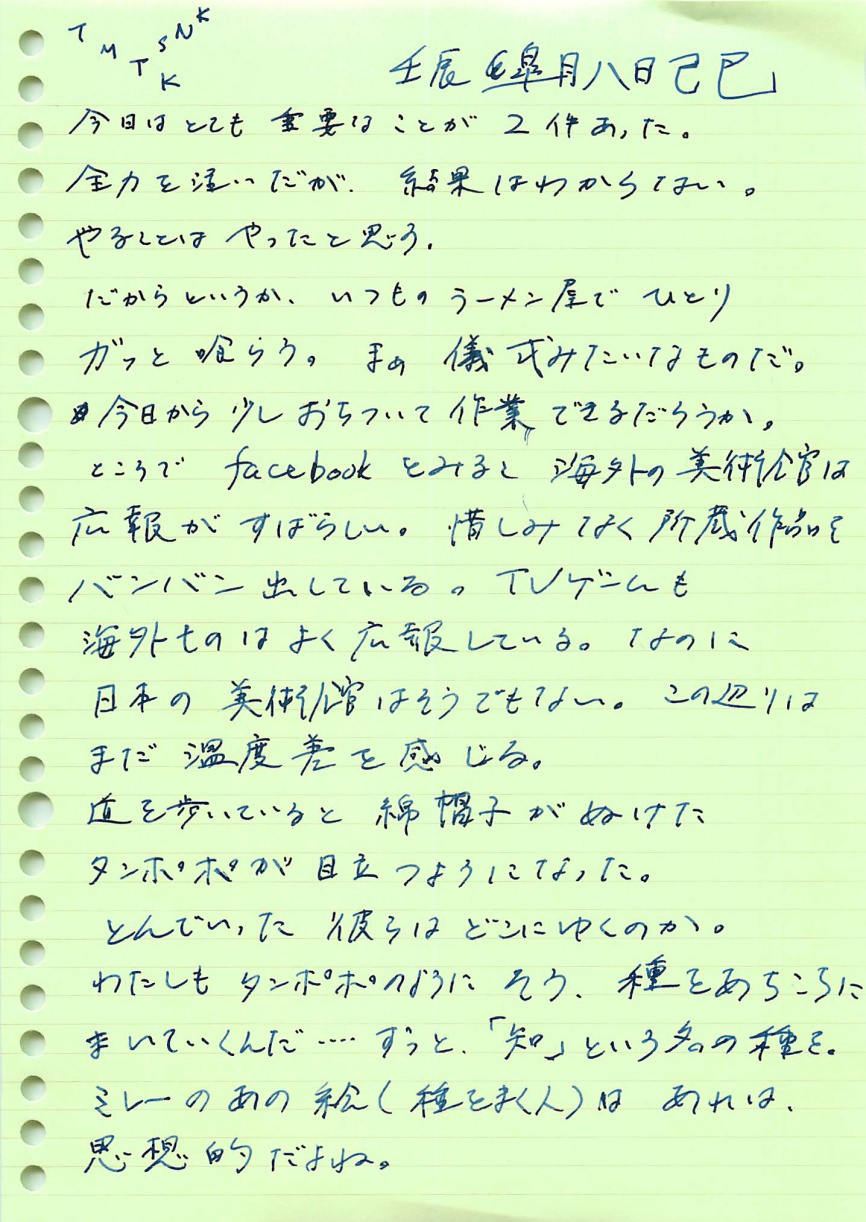 TMTKSNK
壬辰 皐月八日己巳
今日はとても重要なことが2件あった。
全力を注いだが、結果はわからない。
やることはやったと思う.
だからというか、いつものラーメン屋でひとり
ガッと喰らう。まぁ儀式みたいなものだ。
今日から少しおちついて作業できるだろうか。
ところでfacebookをみると海外の美術館は
広報がすばらしい。惜しみなく所蔵作品を
バンバン出している。TVゲームも
海外ものはよく広報している。なのに
日本の美術館はそうでもない。この辺りは
まだ温度差を感じる。
道を歩いていると綿帽子がぬけた
タンポポが目立つようになった。
とんでいった彼らはどこにゆくのか。
わたしもタンポポのようにそう、種をあちこちに
まいていくんだ……ずっと、「知」という名の種を。
ミレーのあの絵(種をまく人)は あれは、
思想的だよね。